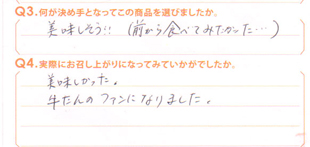 Q3.何が決め手となってこの商品を選びましたか。
美味しそう!! (前から食べてみたかった…)
Q4.実際にお召し上がりになってみていかがでしたか。
美味しかった。
牛たんのファンになりました。